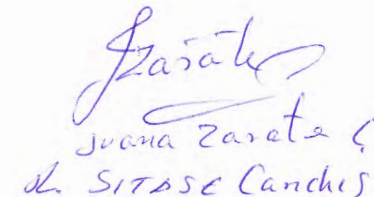 JZarate
Juana Zarate C
SITASE Canchis